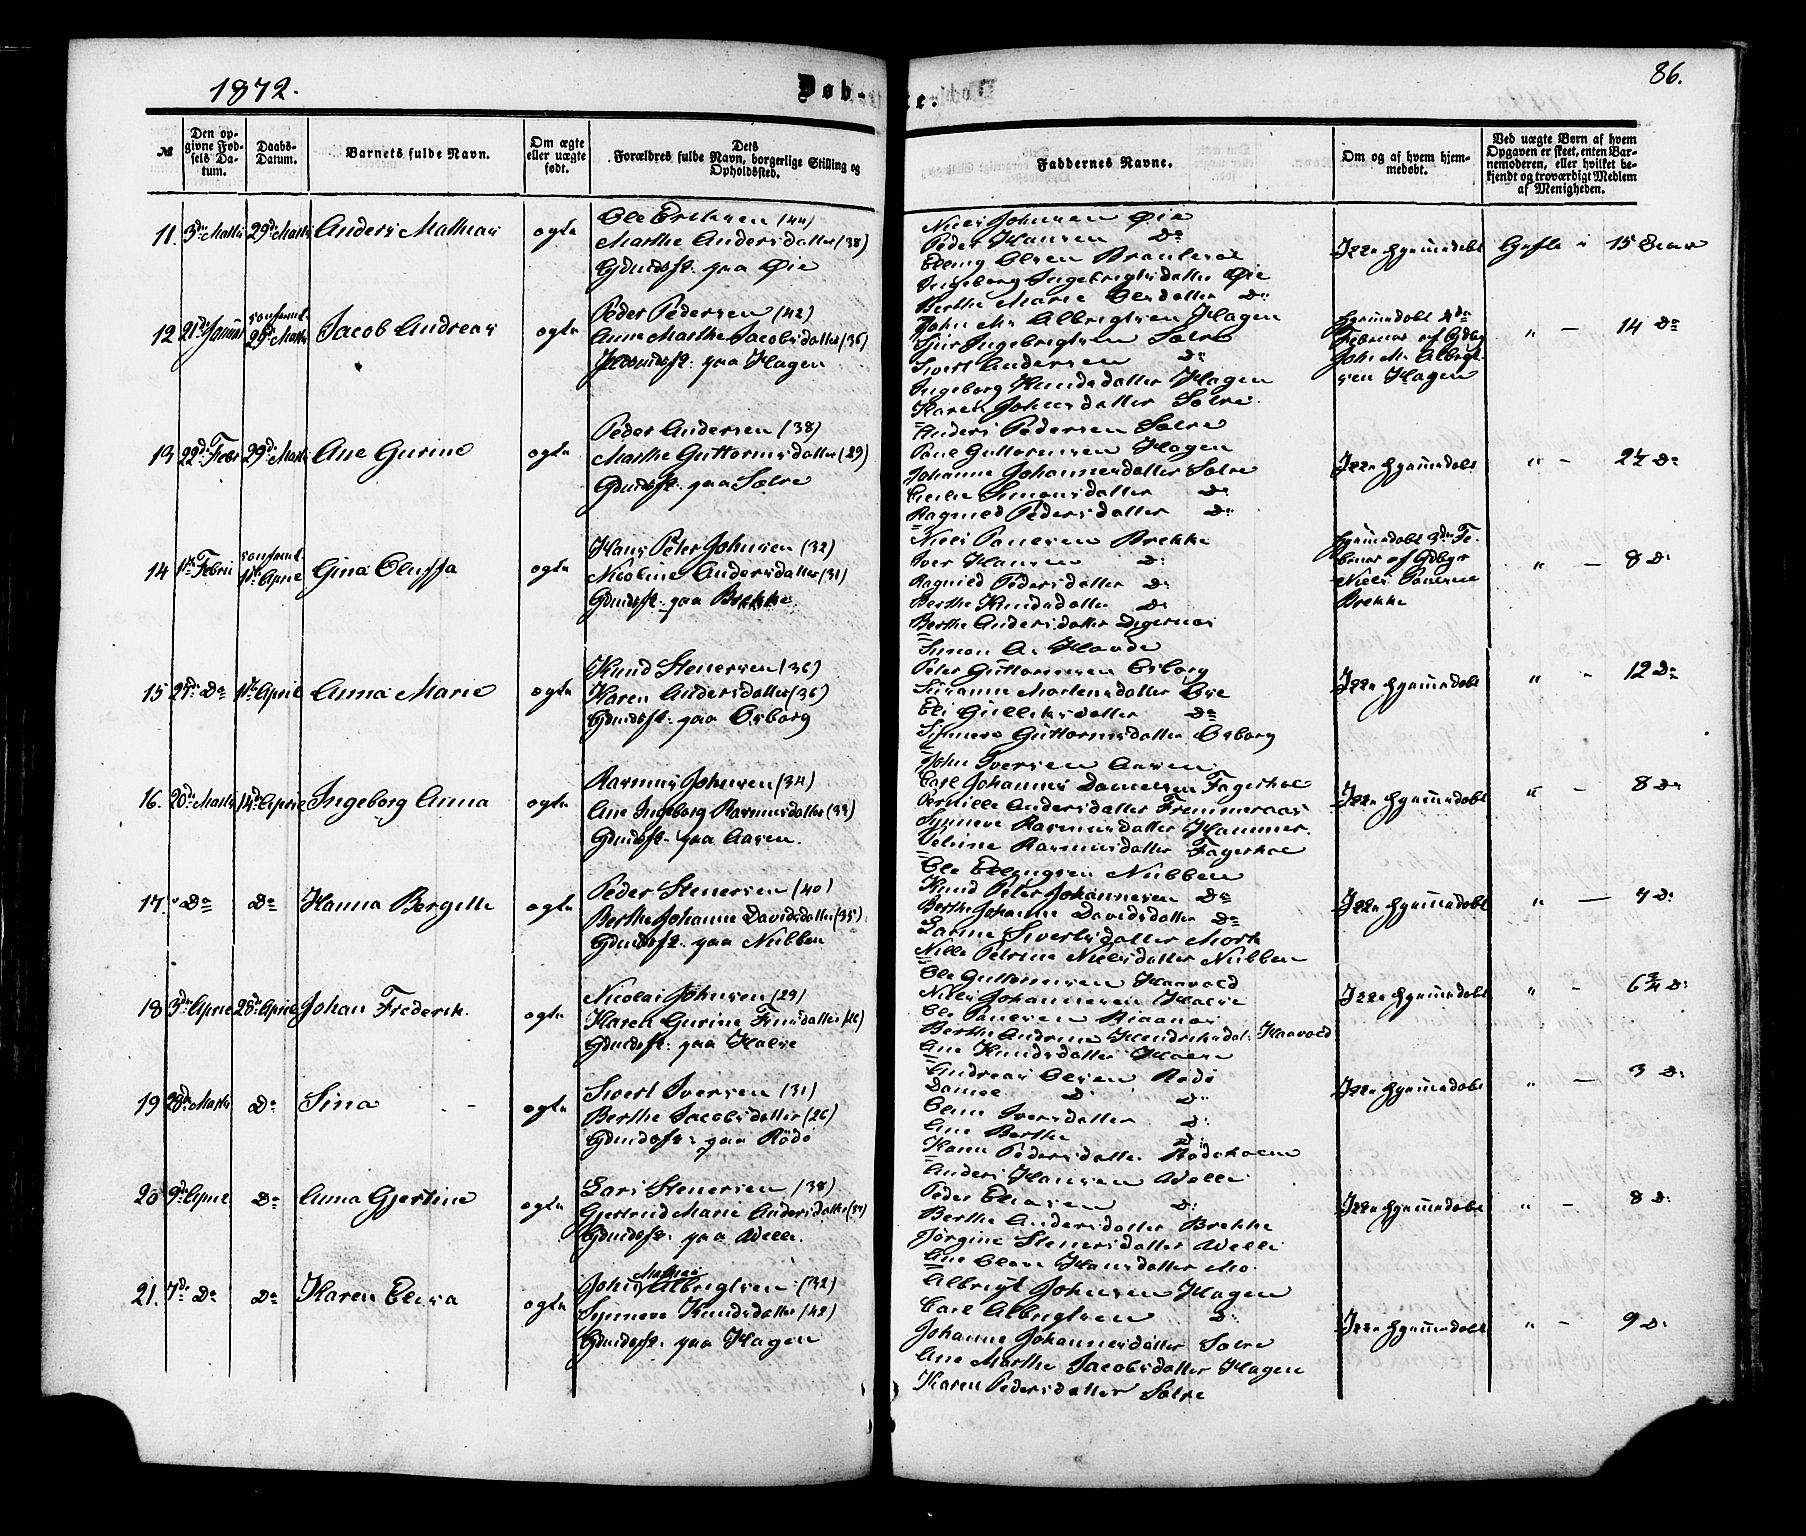 1872.
Døb-
te.
86.
№
Den op-
givne Fød-
sels Da-
tum.
Daabs-
Datum.
Barnets fulde Navn.
Om ægte
eller uægte
født.
Dets
Forældres fulde Navn, borgerlige Stilling og
Opholdssted.
Faddernes Navne.
Om og af hvem hjem-
medøbt.
Ved uægte Børn af hvem
Opgaven er skeet, enten Bar-
nemoderen, eller hvilket be-
kjendt og troværdigt Medlem
af Menigheden.
11. 3die Marts 29de Marts Anders Mathias ægte
Ole Eriksen (44)
Marthe Andersdatter (38)
Gbmdsfl. paa Øie
Niels Johnsen Øie
Peder Hansen Do
Elling Olsen
Ingeborg Ingebrigtsdatter Øie
Berthe Marie Olsdatter Do
Ikke hjemmedøbt
Gufle - 15
12 21de Januar confirmt 29de Marts Jacob Andreas ægte
Peder Pedersen (42)
Anne Marthe Jacobsdatter (36)
Huusmdsfl. paa Hagen
John Ms Albrigtsen Hagen
Siur Ingebrigtsen Solre
Sivert Andersen Do
Ingeborg Knudsdatter Hagen
Karen Johnsdatter Solre
hjemmedøbt 4de
Februar af Gdbrg
John M. Albrigt-
sen Hagen
" - 14 Do
13 22de Febr 29de Marts Ane Gurine ægte
Peder Andersen (38)
Marthe Guttormsdatter (29)
Gbmdsfl. paa Solre
Anders Pedersen Solre
Poul Guttormsen Hagen
Johanne Johannesdatter Solre
Cicilie Simonsdatter Do
Ragnild Pedersdatter Do
Ikke hjemmedøbt
" -
14 1ste Febru confirmt 1ste April Gina Oluffa ægte
Hans Peter Johnsen (32)
Nicoline Andersdatter (31)
Gbmdsfl. paa Brekke
Niels Poulsen Brekke
Iver Hansen Do
Ragnild Pedersdatter Do
Berthe Knudsdatter Do
Berthe Andersdatter Digernæs
hjemmedøbt 3die Fe-
bruar af Gdbgr
Niels Poulsen
Brekke
" - 8 Do
15 27de Do 1ste April Anna Marie ægte
Knud Stenersen (36)
Karen Andersdatter (36)
Gbmdsfl. paa Osborg
Simon A. Hovde
Peter Guttormsen Osborg
Susanne Mortensdatter Øre
Eli Gulliksdatter Do
Synneve Guttormsdatter Osborg
Ikke hjemmedøbt
" - 12 Do
16. 20de Marts 14de April Ingeborg Anna ægte
Rasmus Johnsen (34)
Ane Ingeborg Rasmusdatter (33)
Gbmdsfl. paa Aasen.
John Iversen Aasen
Carl Johannes Danielsen Fagerhol
Pernille Andersdatter Fremmeraas
Synneve Rasmusdatter Hammer.
Veline Rasmusdatter Fagerhol
Ikke hjemmedøbt
" - 8 Do
17. Do Do Hanna Bergitte ægte
Peder Stenersen (40)
Berthe Johanne Davidsdatter (35)
Gbmdsfl. paa Nubben
Ole Ellingsen Nubben
Knud Peter Johannesen Do
Berthe Johanne Davidsdatter Do
Larine Sivertsdatter Mork
Nille Petrine Nielsdatter Nubben
Ikke hjemmedøbt
" - 7 Do
18 3die April 28de April Johan Frederik ægte
Nicolai Johnsen (29)
Karen Gurine Finsdatter (26)
Gbmdsfl. paa Halse
Ole Guttormsen Haavold
Niels Johannesen Halse
Ole Poulsen
Berthe Andrine Hendriksdat. Haavold
Ane Knudsdatter Halse
Ikke hjemmedøbt
" - 6 3/4 Do
19 28de Marts Do Sina ægte
Sivert Iversen (31)
Berthe Jacobsdatter (26)
Gbmdsfl. paa Rødø
Andreas Olsen Rødø
Daniel Do
Oline Iversdatter Do
Ane Berthe Do
Hanna Pedersdatter Rødeholm
Ikke hjemmedøbt
" - 3 Do
20 9de April Do Anna Gjertine ægte
Lars Stenersen (38)
Gjertrud Marie Andersdatter (34)
Gbmdsfl. paa Welle
Anders Hansen Welle
Peder Eliasen Do
Berthe Andersdatter Brekke
Jørgine Stenersdatter Welle
Ane Oline Hansdatter Mo
Ikke hjemmedøbt
" - 8 Do
21. 7de Do Do Karen Elisa ægte
Mathias
John Albrigtsen (32)
Synneve Knudsdatter (42)
Gbmdsfl. paa Hagen
Albrigt Johnsen Hagen
Carl Albrigtsen Do
Johanne Johannesdatter Solre
Ane Marthe Jacobsdatter Hagen
Karen Pedersdatter Solre
Ikke hjemmedøbt
" - 9 Do